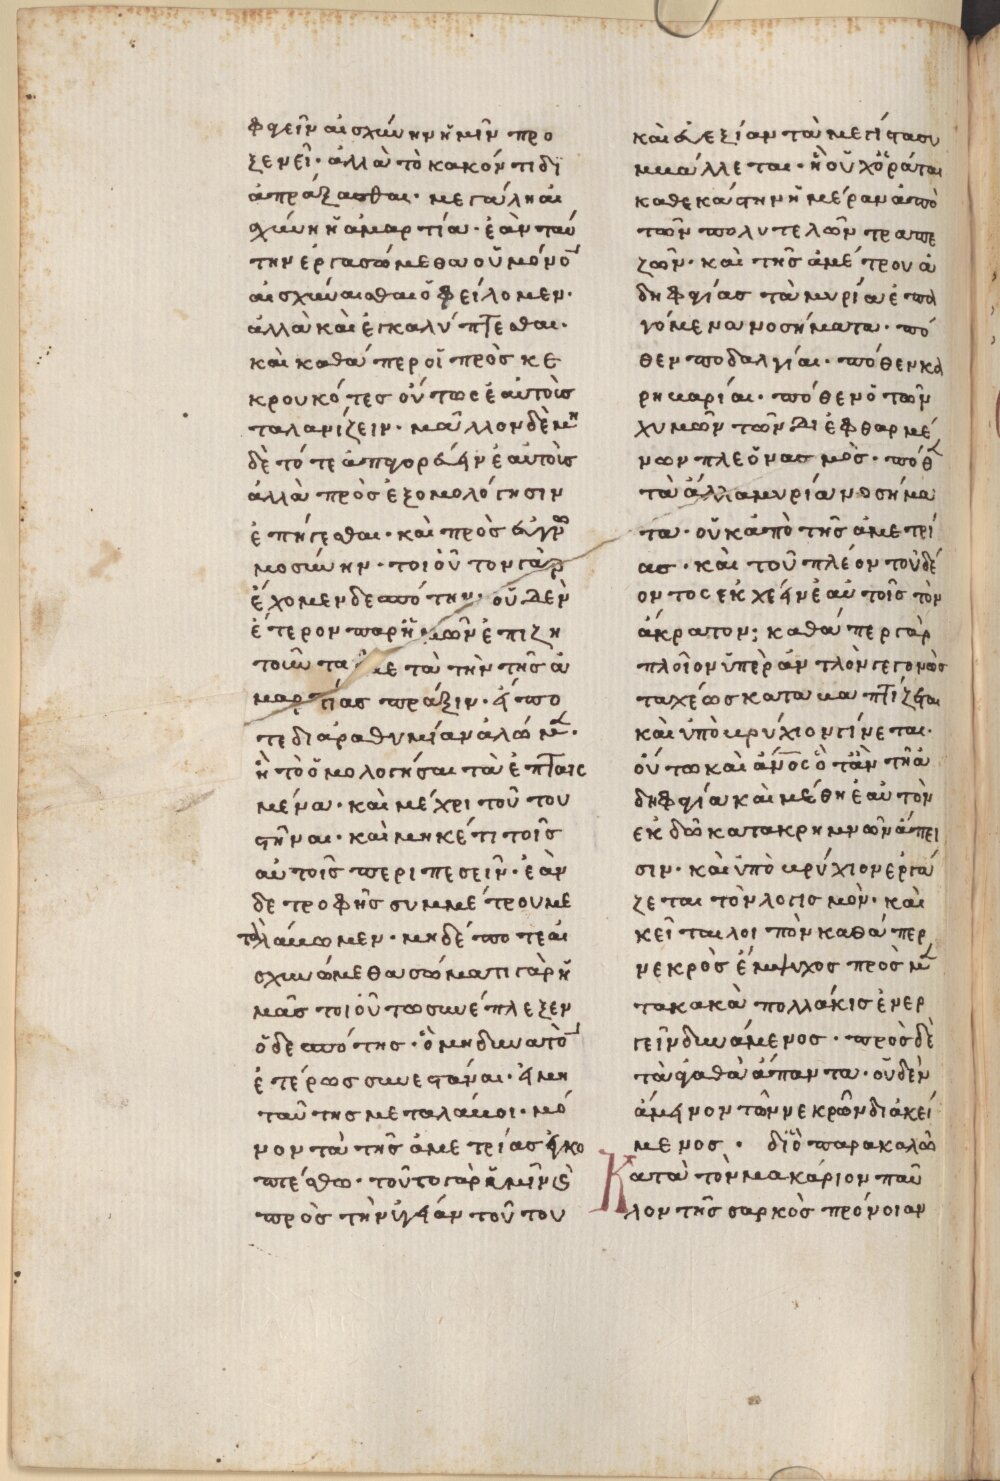 φυεῖν αἰσχύνην ἡμῖν προ
ξενεῖ· ἀλλὰ τὸ κακόν τι δι
απράξασθαι· μεγάλη αἰ
σχύνη ἡ ἁμαρτία· ἐὰν ταύ
την ἐργασώμεθα οὐ μόνο
αἰσχύνεσθαι ὀφείλομεν·
ἀλλὰ καὶ ἐγκαλύπτεσθαι·
καὶ καθάπερ οἱ προσκε
κρουκότες οὕτως ἑαυτοὺς
ταλανίζειν· μᾶλλον δὲ μη
δὲ τότε ἀπαγορεύειν ἑαυτοῖς
ἀλλὰ πρὸς ἐξομολόγησιν
ἐπείγεσθαι· καὶ πρὸς εὐγνω
μοσύνην· τοιοῦτον γὰρ
ἔχομεν δεσπότην· οὐδὲν
ἕτερον παρ' ἡμῶν ἐπιζη
τοῦντα μετὰ τὴν τῆς ἁ
μαρτίας πρᾶξιν· εἴ πο
τε διὰ ῥαθυμίαν ἁλῶμεν·
ἢ τὸ ὁμολογῆσαι τὰ ἐπταισ
μένα· καὶ μέχρι τούτου
στῆναι· καὶ μηκέτι τοῖς
αὐτοῖς περιπεσεῖν· ἐὰν
δὲ τροφῆς συμμέτρου με
ταλάβωμεν· μηδέποτε αἰ
σχυνώμεθα σώματι γὰρ ἡ
μᾶς τοιούτω συνέπλεξεν
ὁ δεσπότης· ὃ μὴ δυνατὸ
ἑτέρως συνεστάναι· εἰ μὴ
ταύτης μεταλάβοι· μό
νον τὰ τῆς ἀμετρίας ἐκκο
πτέσθω· τοῦτο γὰρ ἡμῖν καὶ
πρὸς τὴν ὑγείαν τούτου
καὶ εὐεξίαν τὰ μέγιστα συ
μβάλλεται· ἢ οὐχ ὁρᾶται
καθεκάστην ἡμέραν ἀπὸ
τῶν πολυτελῶν τραπε
ζῶν· καὶ τῆς ἀμέτρου ἀ
δηφγίας τὰ μυρία ἐπα
γόμενα νοσήματα· πό
θεν ποδαλγίαι· πόθεν κα
ρηβαρίαι· πόθεν ὁ τῶν
χυμῶν τῶν διεφθαρμέ
νων πλεονασμός· πόθεν
τὰ ἄλλα μυρία νοσήμα
τα· οὐκ ἀπὸ τῆς ἀμετρί
ας· καὶ τοῦ πλέον τοῦ δέ
οντος ἐκχεῖν ἑαυτοῖς τὸν
ἄκρατον; καθάπερ γὰρ
πλοῖον ὑπέραντλον γεγονὸς
ταχέως καταβαπτίζεται
καὶ ὑποβρύχιον γίνεται·
οὕτω καὶ ἄνος ὅταν τῆ ἀ
δηφγία καὶ μέθη ἑαυτὸν
ἐκδῶ κατακρημνῶν ἄπει
σιν· καὶ ὑποβρύχιον ἐργά
ζεται τὸν λογισμόν· καὶ
κεῖται λοιπὸν καθάπερ
νεκρὸς ἔμψυχος πρὸς μὲν
τὰ κακὰ πολλάκις ἐνερ
γεῖν δυνάμενος· πρὸς δὲ
τἀγαθὰ ἅπαντα· οὐδὲν
ἄμεινον τῶν νεκρῶν διακεί
μενος· διὸ παρακαλῶ
Κατὰ τὸν μακάριον παῦ
λον τῆς σαρκὸς πρόνοιαν